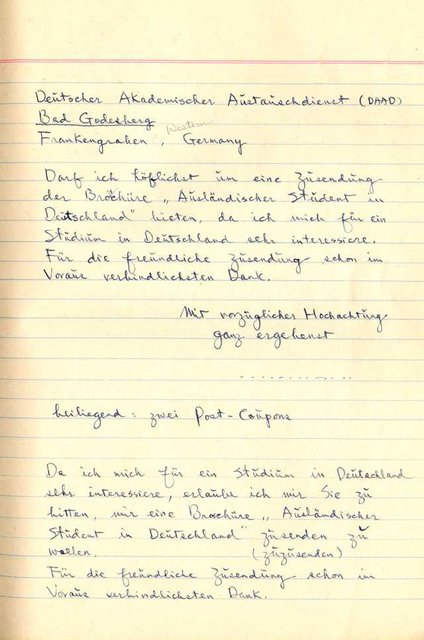 Deutscher Akademischer Austauschdienst (DAAD)
Bad Godesberg
Western
Frankengraben, Germany
Darf ich höflichst um eine Zusendung
der Broschüre „Ausländischer Student in
Deutschland" bieten, da ich mich für ein
Studium in Deutschland sehr interessiere.
Für die freundliche Zusendung schon im
Voraus verbindlichsten Dank.
Mit vorzüglicher Hochachtung
ganz ergebenst
beiliegend: zwei Post-Coupons
Da ich mich für ein Studium in Deutschland
sehr interessiere, erlaube ich mir Sie zu
bitten, mir eine Broschüre „Ausländischer
Student in Deutschland" zusenden zu
wollen, (zuzusenden)
Für die freundliche Zusendung schon im
Voraus verbindlichsten Dank.